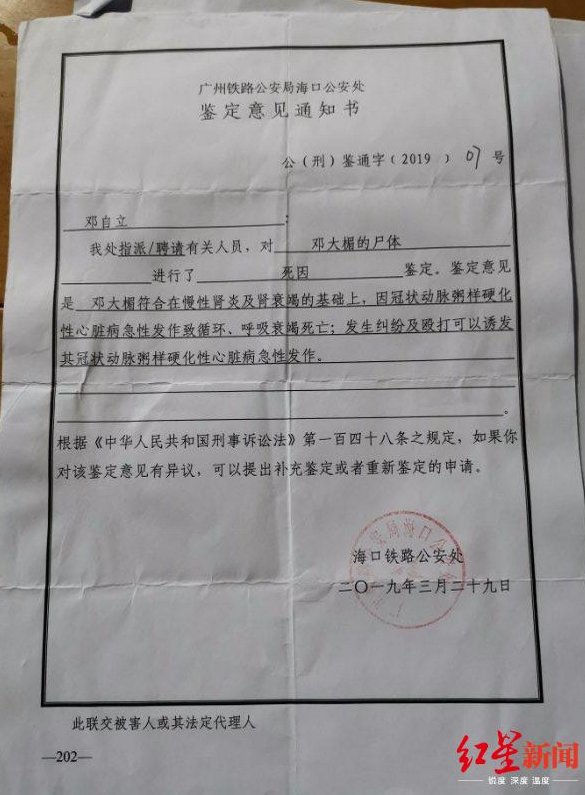 广州铁路公安局海口公安处
鉴定意见通知书
公(刑)鉴通字(2019)07号
邓自立:
我处指派/聘请有关人员,对 邓大楣的尸体
进行了 死因 鉴定。鉴定意见
是 邓大楣符合在慢性肾炎及肾衰竭的基础上,因冠状动脉粥样硬化
性心脏病急性发作致循环、呼吸衰竭死亡;发生纠纷及殴打可以诱发
其冠状动脉粥样硬化性心脏病急性发作。
。
根据《中华人民共和国刑事诉讼法》第一百四十八条之规定,如果你
对该鉴定意见有异议,可以提出补充鉴定或者重新鉴定的申请。
海口铁路公安处
二〇一九年三月二十九日
此联交被害人或其法定代理人
—202—
红星新闻
锐度 深度 温度